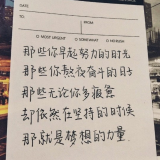 DATE
TO
FROM
☐ MOST URGENT ☐ SOMEWHAT ☐ MODERN
那些你早起努力的时光
那些你熬夜奋斗的日子
那些无论你多狼狈
却依然在坚持的时候
那就是梦想的力量.